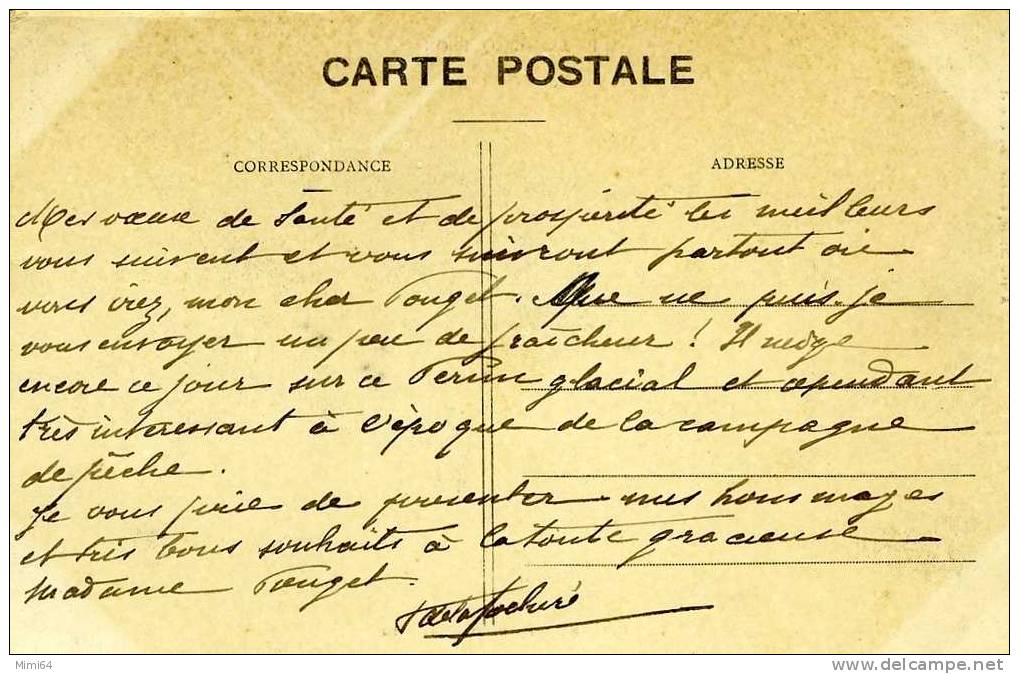 CARTE POSTALE
CORRESPONDANCE
ADRESSE
Mes vœux de santé et de prospérité les meilleurs
vous suivent et vous suivront partout où
vous irez, mon cher Pouget. Que ne puis-je
vous envoyer un peu de fraîcheur ! Il neige
encore ce jour sur ce glacial et cependant
très intéressant à l'époque de la campagne
de pêche.
Je vous prie de presenter mes hommages
et très bons souhaits à la toute gracieuse
Madame Pouget.
Mimi64
delcampe.net